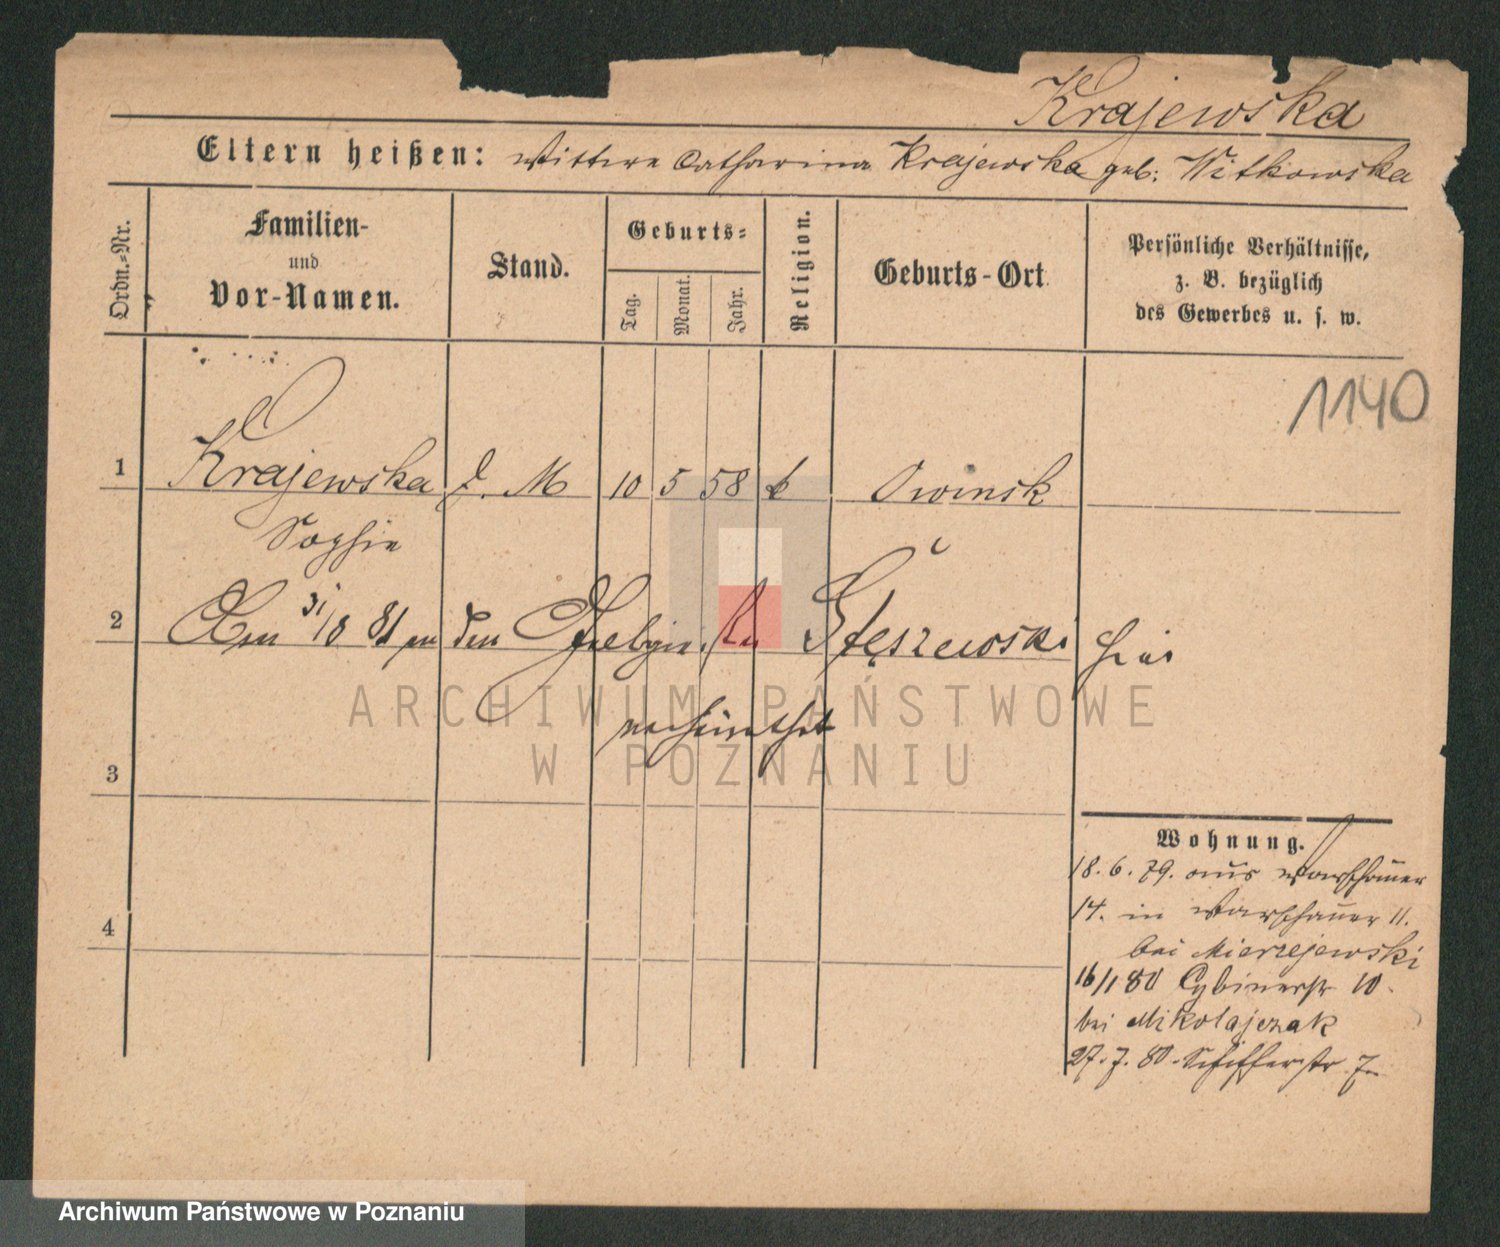 Krajewska
Eltern heißen: Wittwe Catharina Krajewska geb: Witkowska
Ordn.-Nr.
Familien-
und
Vor-Namen.
Stand.
Geburts-
Tag.
Monat.
Jahr.
Religion.
Geburts-Ort
Persönliche Verhältnisse,
z. B. bezüglich
des Gewerbes u. s. w.
1140
1 Krajewska d. M 10 5 58 k Owinsk
Sophie
2 Am 31/8 81 an den Stęszewski hier
verheirathet
3
4
Wohnung.
18. 6. 79. aus Warschauer
14. in Warschauer 11.
bei Mierzejewski
16/1 80 Cybinerstr 10.
bei Mikołajczak
27. 7. 80. Schifferstr 7.
ARCHIWUM PAŃSTWOWE
W POZNANIU
Archiwum Państwowe w Poznaniu